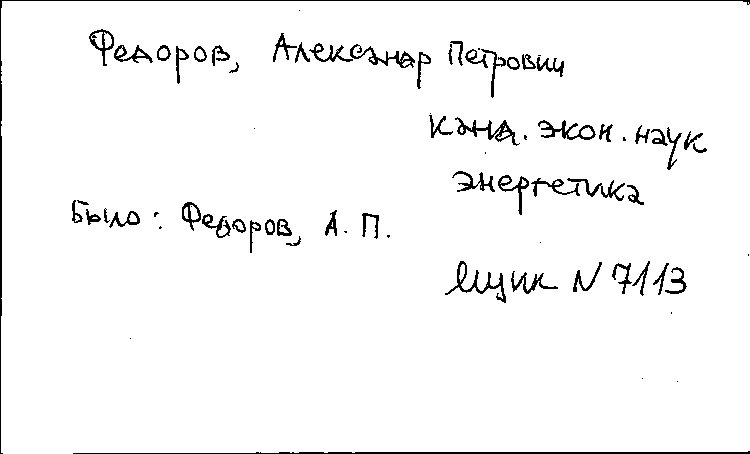 Федоров, Александр Петрович
канд. экон. наук
энергетика
Было: Федоров, А. П.
Ящик N 7113